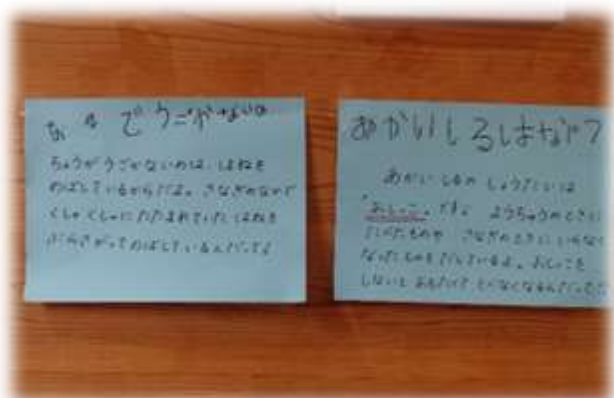 なんでうごかないの
ちょうがうごかないのは、はねを
のばしているからだよ。さなぎのなかで
くしゃくしゃにたたまれていたはねを
ぶらさがってのばしているんだって
あかいしるはなに?
あかいしるの しょうたいは
"おしっこ"です。ようちゅうのときに
たべたものや さなぎのときに いらなく
なったものをだしているよ。おしっこを
しないと おもたくて とべなくなるんだって